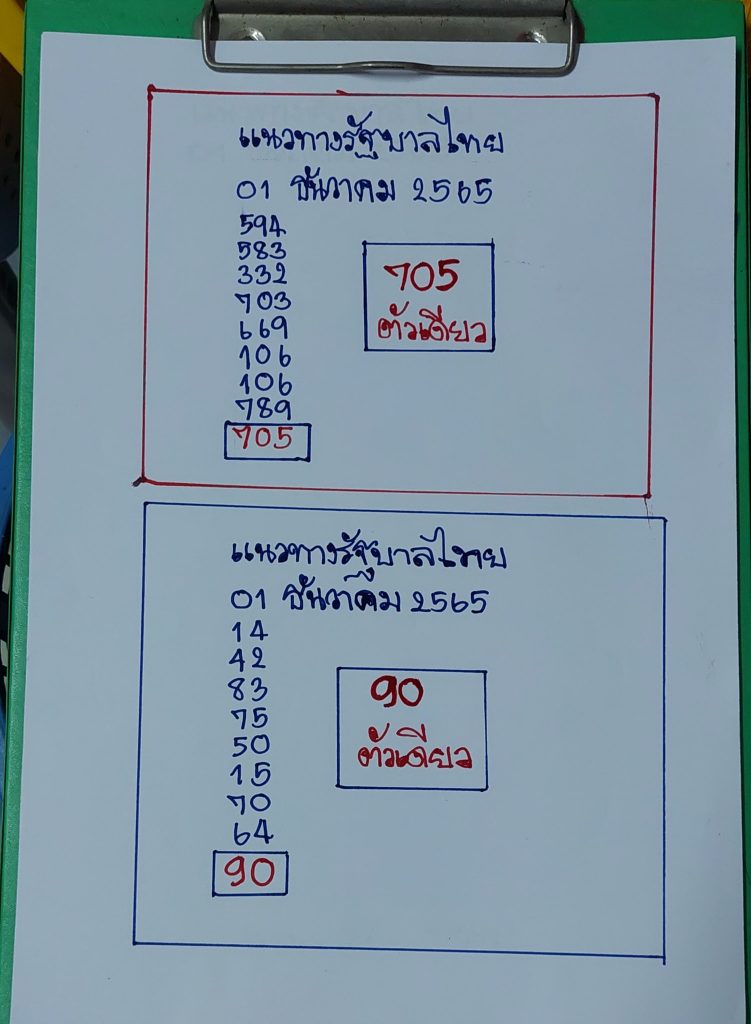 แนวทางรัฐบาลไทย
01 ธันวาคม 2565
594
583
332
703
669
106
106
789
705
705
ตัวเดียว
แนวทางรัฐบาลไทย
01 ธันวาคม 2565
14
42
83
75
50
15
70
64
90
90
ตัวเดียว